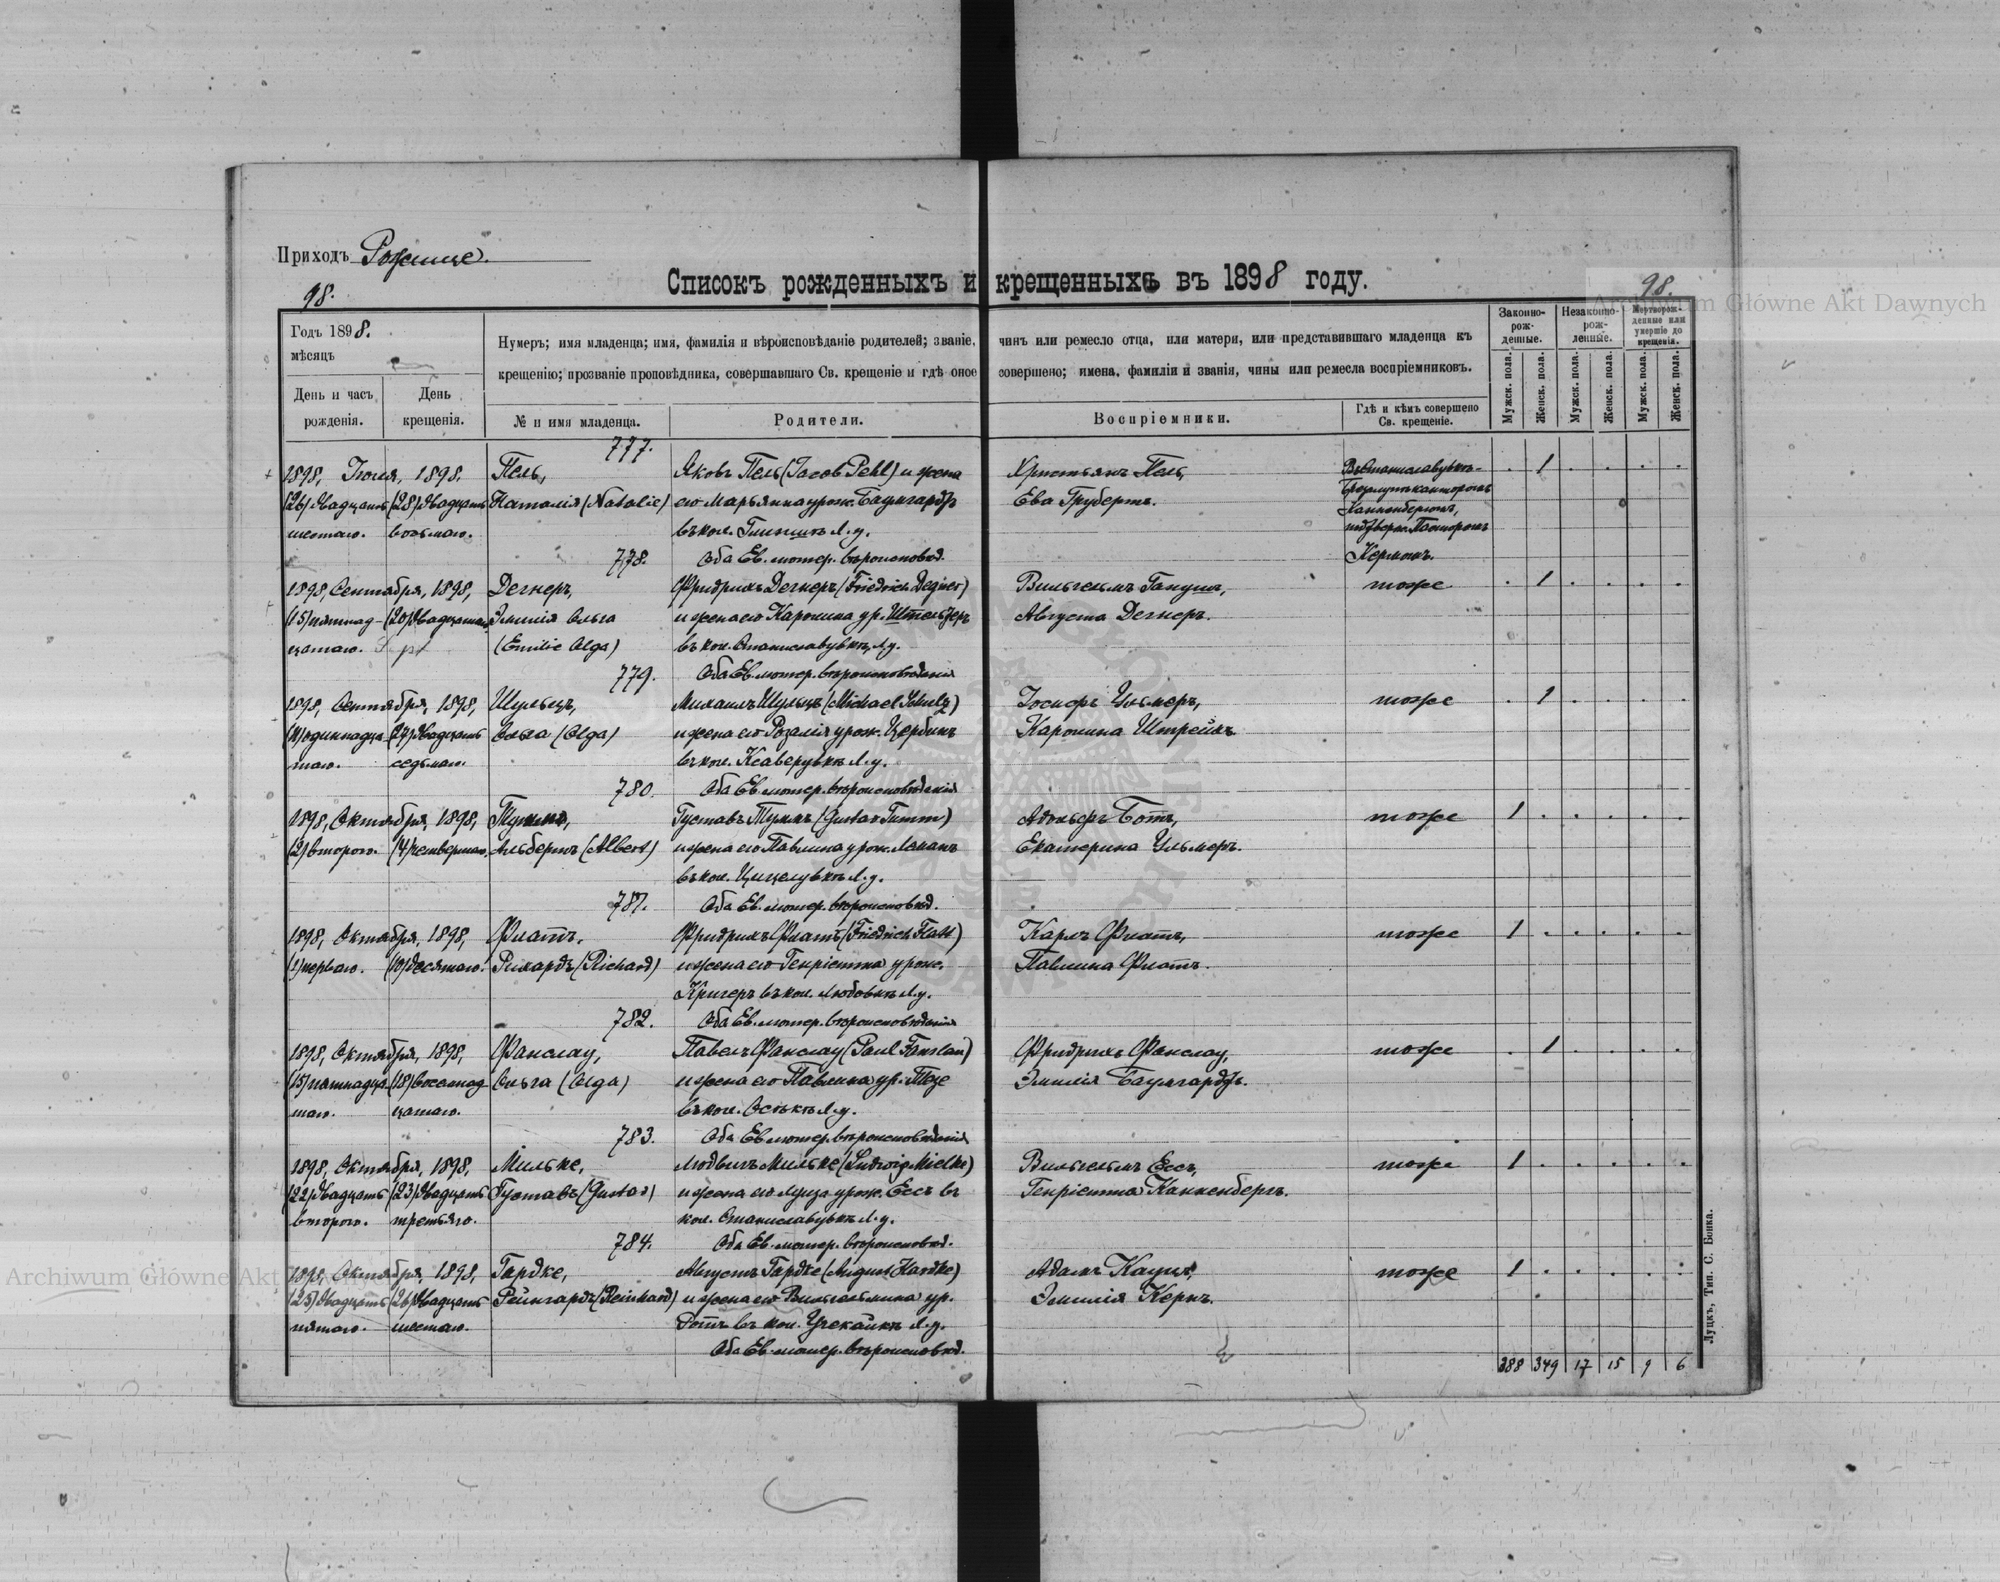 Приходъ Рожище.
98.
Списокъ рожденныхъ и крещенныхъ въ 1898 году.
98.
Archiwum Główne Akt Dawnych
Годъ 1898.
мѣсяцъ
День и часъ рожденія.
День крещенія.
Нумеръ; имя младенца; имя, фамилія и вѣроисповѣданіе родителей; званіе, чинъ или ремесло отца, или матери, или представившаго младенца къ
крещенію; прозваніе проповѣдника, совершавшаго Св. крещеніе и гдѣ оное совершено; имена, фамиліи и званія, чины или ремесла воспріемниковъ.
№ и имя младенца.
Родители.
Воспріемники.
Гдѣ и кѣмъ совершено Св. крещеніе.
Законно-рож-денные.
Незаконно-рож-денные.
Мертворож-денные или умершіе до крещенія.
Мужск. пола.
Женск. пола.
Мужск. пола.
Женск. пола.
Мужск. пола.
Женск. пола.
777.
1898, Іюля, 1898. Пель, Яковъ Пель (Jacob Pehl) и жена Христьянъ Пель, Въ Станиславувкѣ 1
(26) двадцать (28) двадцать Наталія (Natalie) его Марьянна урож. Баумгардтъ Ева Грубертъ.
шестаго. восьмаго. въ кол. Л.у. подтвержд. Пасторомъ
Оба Ев. лютер. вѣроисповѣд. Керномъ.
778.
1898, Сентября, 1898, Дегнеръ, Фридрихъ Дегнеръ (Friedrich Degner) Вильгельмъ Ганушъ, тоже 1
(15) пятнад- (20) двадцатаго Эмилія Ольга и жена его Каролина ур. Штельтеръ Августа Дегнеръ.
цатаго. (Emilie Olga) въ кол. Станиславувкѣ, Л.у.
Оба Ев. лютер. вѣроисповѣданія
779.
1898, Сентября, 1898, Шульцъ, Михаилъ Шульцъ (Michael Schulz) Іосифъ Ульмеръ, тоже 1
(11) одиннадца- (27) двадцать Ольга (Olga) и жена его Розалія урож. Цербинъ Каролина Штрейхъ
таго. седьмаго. въ кол. Ксаверувкѣ Л.у.
Оба Ев. лютер. вѣроисповѣданія
780.
1898, Октября, 1898, Туммъ, Густавъ Тумъ (Gustav Tumm) Адольфъ Ботъ, тоже 1
(2) втораго. (4) четвертаго, Альбертъ (Albert) и жена его Павлина урож. Леманъ Екатерина Ульмеръ.
въ кол. Цицелувкѣ Л.у.
Оба Ев. лютер. вѣроисповѣд.
781.
1898, Октября, 1898, Флатъ, Фридрихъ Флатъ (Friedrich Flatt) Карлъ Флатъ, тоже 1
(1) перваго. (10) десятаго. Рихардъ (Richard) и жена его Генріетта урож. Павлина Флатъ.
Кригеръ въ кол. Любовкѣ Л.у.
Оба Ев. лютер. вѣроисповѣданія
782.
1898, Октября, 1898, Фанслау, Павелъ Фанслау (Paul Fanslau) Фридрихъ Фанслау, тоже 1
(15) пятнадца- (18) восемнад- Ольга (Olga) и жена его Павлина ур. Тоце Эмилія Баумгардтъ.
таго. цатаго. въ кол. Осъкѣ Л.у.
Оба Ев. лютер. вѣроисповѣданія
783.
1898, Октября, 1898, Мильке, Людвигъ Мильке (Ludwig Mielke) Вильгельмъ Ессъ, тоже 1
(22) двадцать (23) двадцать Густавъ (Gustav) и жена его Луиза урож. Ессъ въ Генріетта Канненбергъ.
втораго. третьяго. кол. Станиславувкѣ Л.у.
Оба Ев. лютер. вѣроисповѣд.
784.
1898, Октября, 1898, Гардке, Августъ Гардке (August Hardke) Адамъ Каутъ, тоже 1
(25) двадцать (26) двадцать Рейнгардъ (Reinhard) и жена его Вильгельмина ур. Эмилія Кернъ.
пятаго. шестаго. въ кол. Л.у.
Оба Ев. лютер. вѣроисповѣд.
388 349 17 15 9 6
Луцкъ, Тип. С. Бонка.
Archiwum Główne Akt